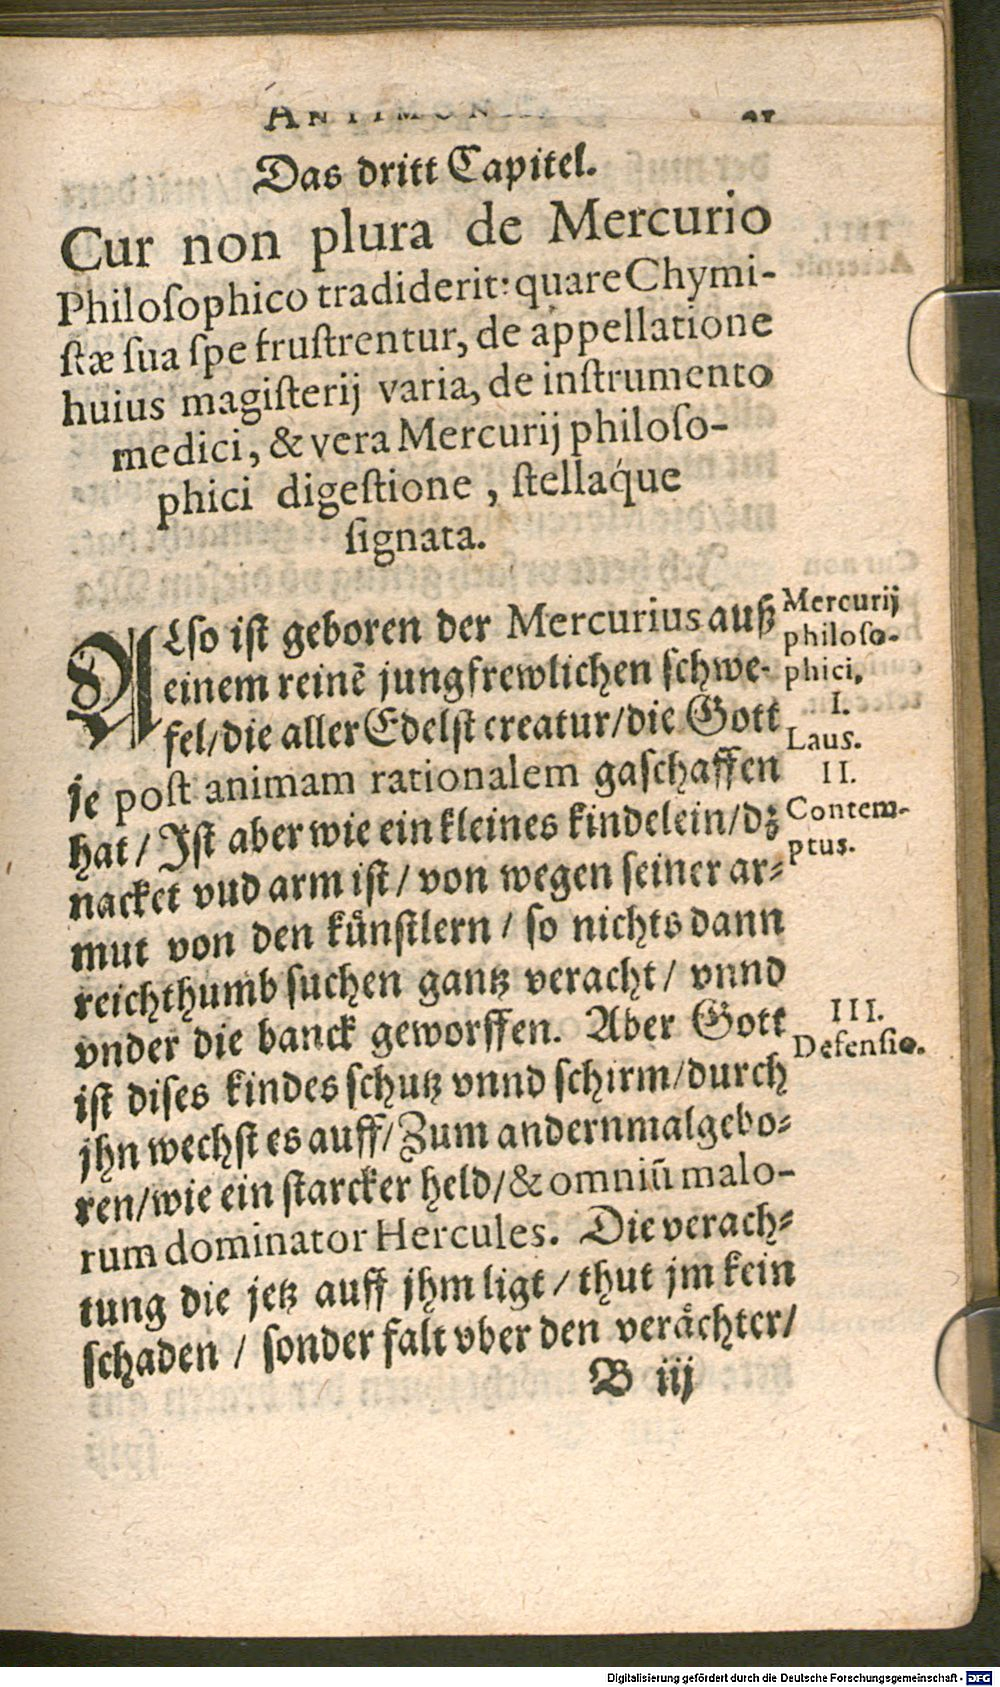 ANTIMON
Das dritt Capitel.
Cur non plura de Mercurio
Philoſophico tradiderit: quare Chymi-
ſtæ ſua ſpe fruſtrentur, de appellatione
huius magiſterij varia, de inſtrumento
medici, & vera Mercurij philoſo-
phici digeſtione, ſtellaq́ue
ſignata.
ALſo iſt geboren der Mercurius auß
einem reinẽ jungfrewlichen ſchwe-
fel/die aller Edelſt creatur/die Gott
je poſt animam rationalem gaſchaffen
hat/ Iſt aber wie ein kleines kindelein/dz
nacket vud arm iſt/ von wegen ſeiner ar-
mut von den kuͤnſtlern/ ſo nichts dann
reichthumb ſuchen gantz veracht/ vnnd
vnder die banck geworffen. Aber Gott
iſt diſes kindes ſchutz vnnd ſchirm/durch
jhn wechſt es auff/Zum andernmal gebo-
ren/wie ein ſtarcker held/& omniũ malo-
rum dominator Hercules. Die verach-
tung die jetz auff jhm ligt/ thut jm kein
ſchaden/ ſonder falt vber den veraͤchter/
B iij
Mercurij
philoſo-
phici.
I.
Laus.
II.
Contem-
ptus.
III.
Defenſio.
Digitalisierung gefördert durch die Deutsche Forschungsgemeinschaft - DFG